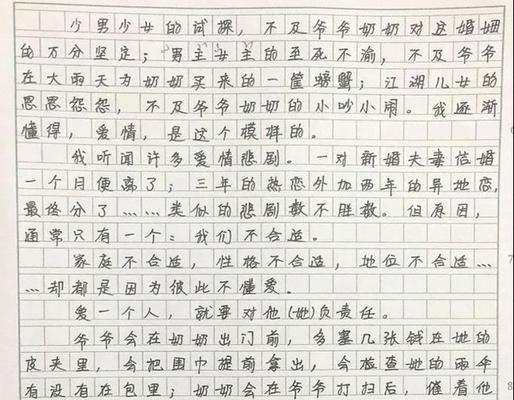 少男少女的试探，不及爷爷奶奶对这婚姻
的万分坚定；男主女主的至死不渝，不及爷爷
在大雨天为奶奶买来的一筐螃蟹；江湖儿女的
恩恩怨怨，不及爷爷奶奶的小吵小闹。我逐渐
懂得，爱情，是这个模样的。
我听闻许多爱情悲剧。一对新婚夫妻结婚
一个月便离了；三年的热恋外加两年的异地恋，
最终分了……类似的悲剧数不胜数。但原因，
通常只有一个：我们不合适。
家庭不合适，性格不合适，地位不合适…
…却都是因为彼此不懂爱。
7
爱一个人，就要对他(她)负责任。
爷爷会在奶奶出门前，多塞几张钱在她的
皮夹里，会把围巾提前拿出，会检查她的雨伞
有没有在包里；奶奶会在爷爷打扫后，催着他
8